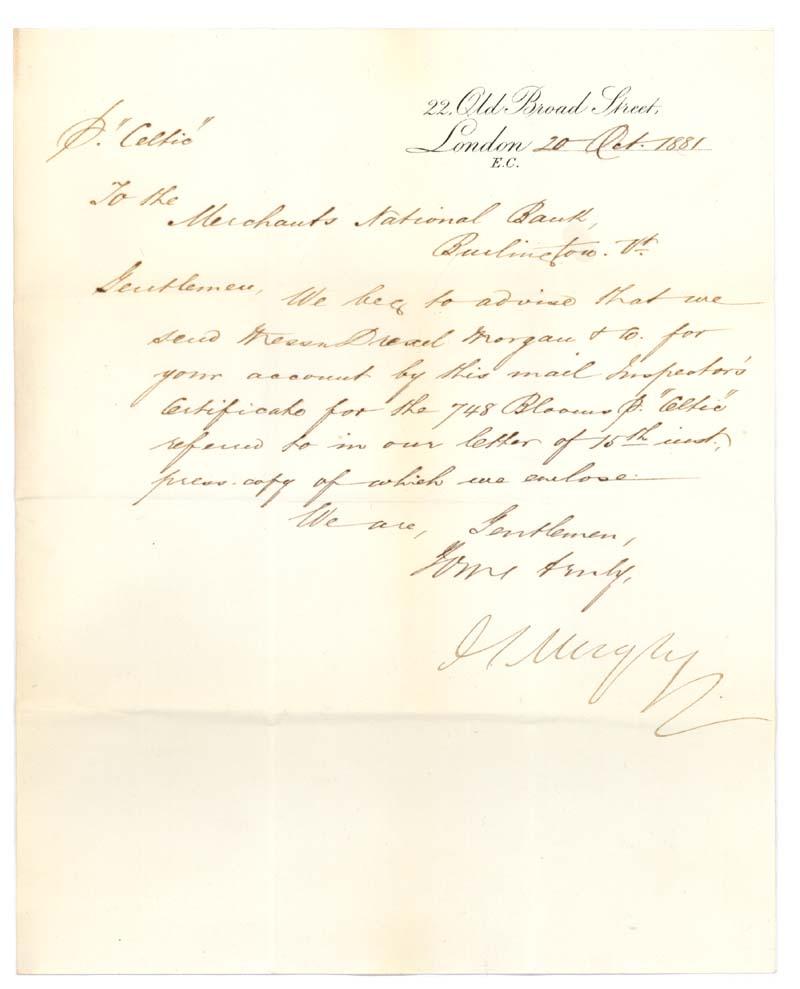 22, Old Broad Street,
London 20 Oct. 1881
E.C.
p. "Celtic"
To the
Merchants National Bank,
Burlington. Vt.
Gentlemen, We beg to advise that we
send Messrs Drexel Morgan & Co. for
your account by this mail Inspector's
Certificate for the 748 Blooms p. "Celtic"
referred to in our letter of 15th inst.,
press-copy of which we enclose.
We are, Gentlemen,
Yours truly,